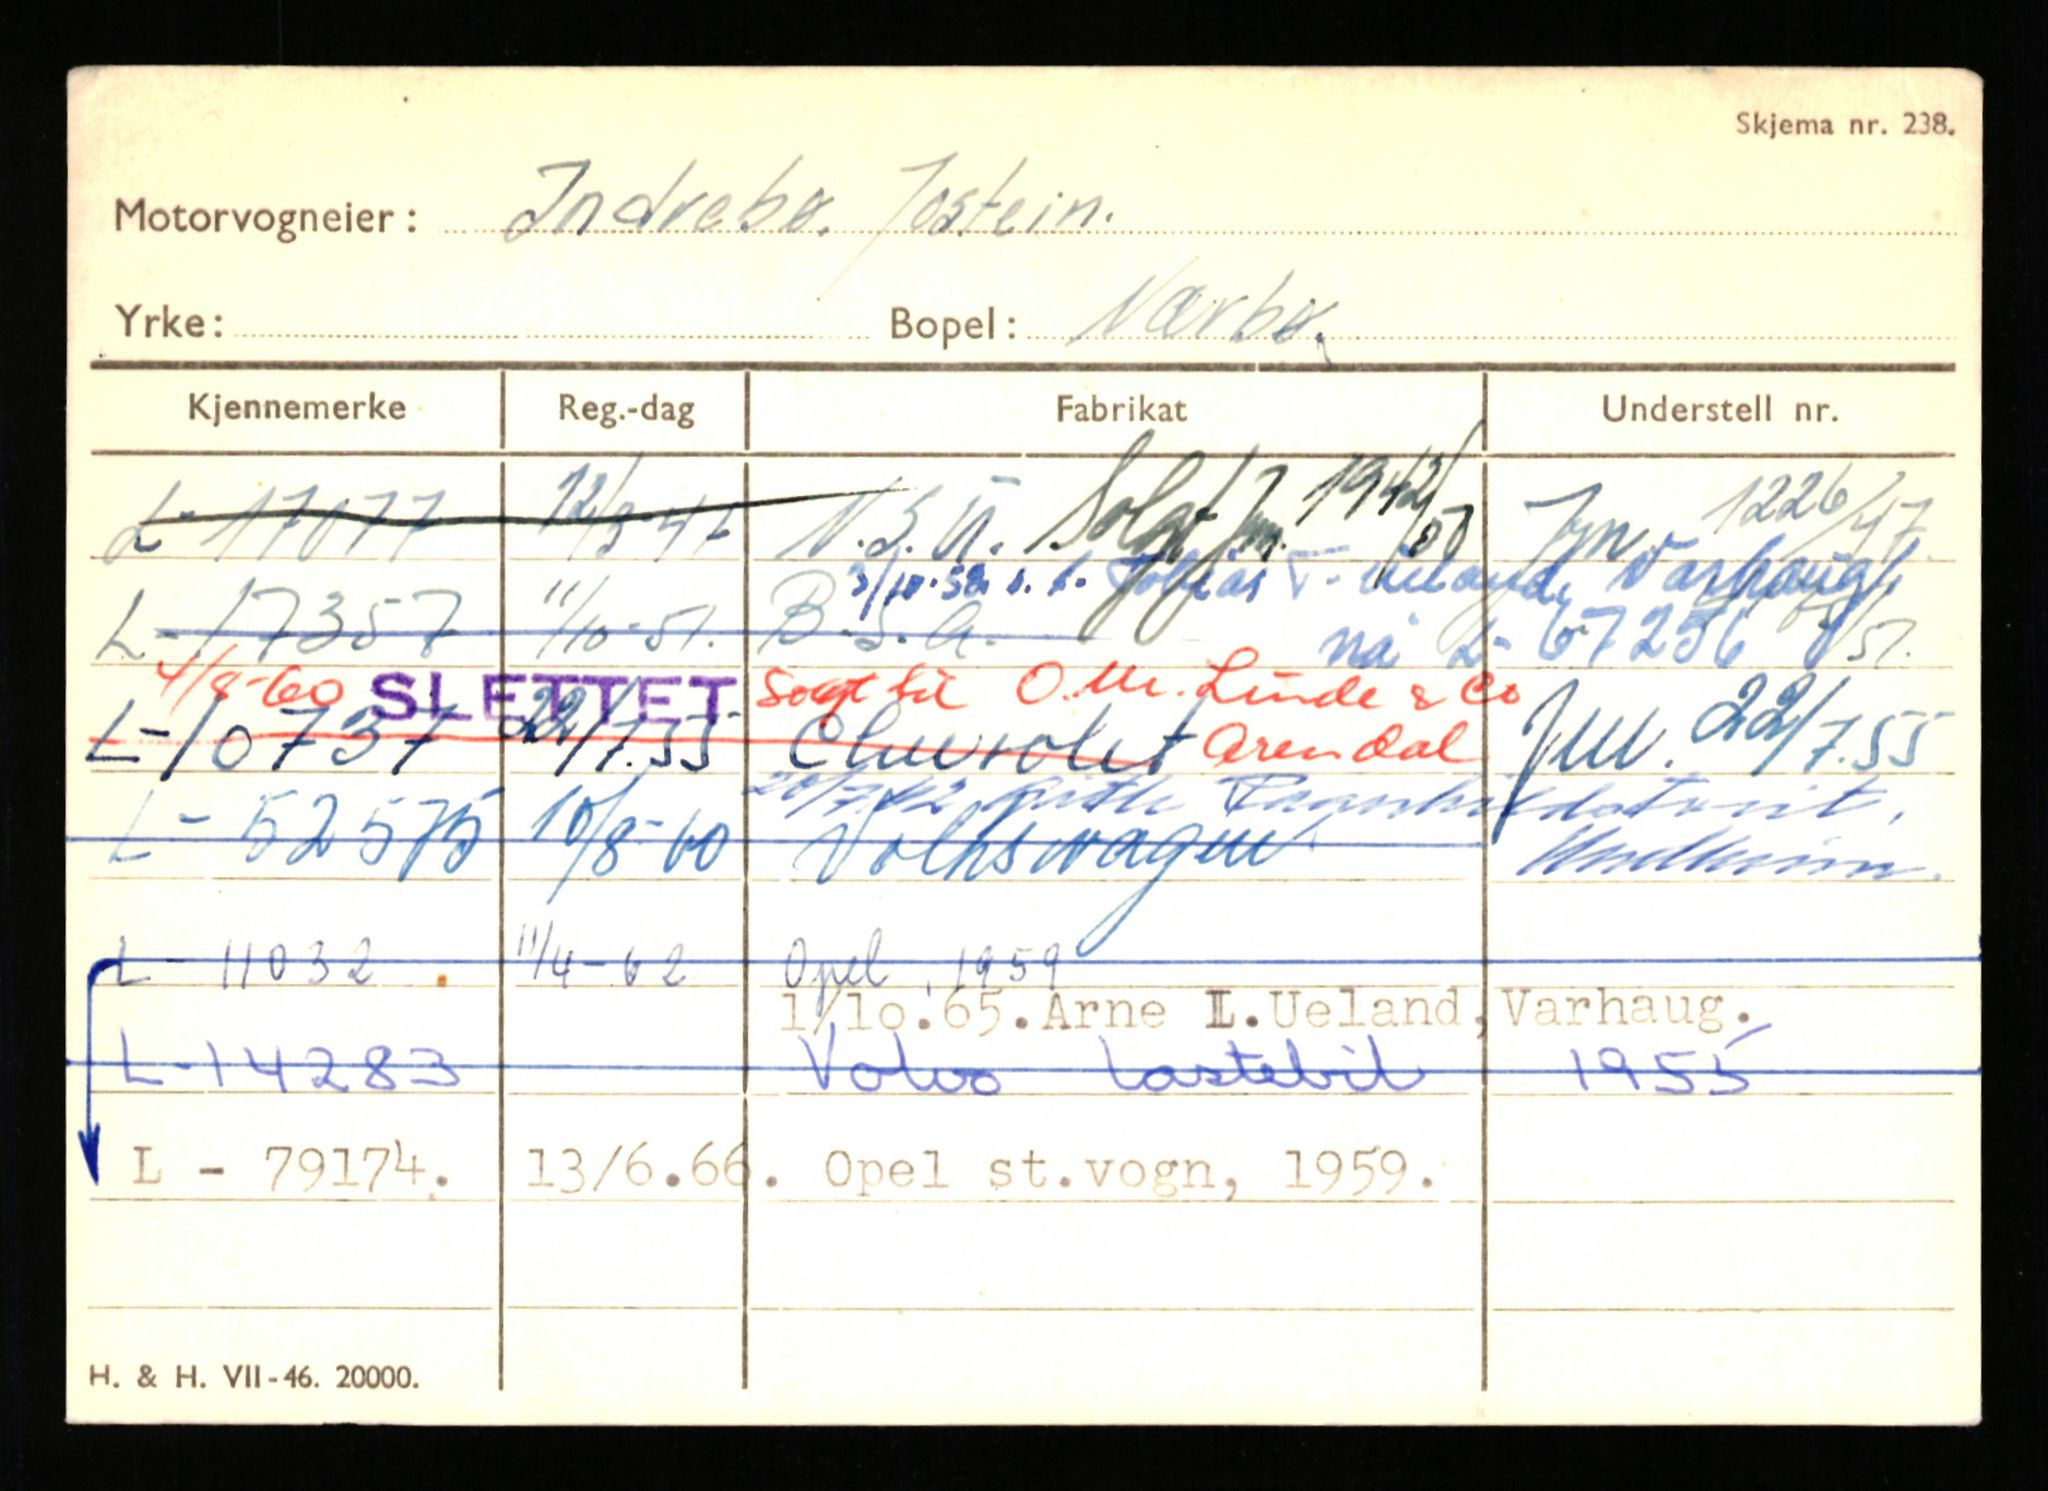 Skjema nr. 238.
Motorvogneier: Indrebø. Jostein.
Yrke: Bopel: Nærbø.
Kjennemerke Reg.-dag Fabrikat Understell nr.
L- 17077 12/3-47 N.S.U. Solgt 1226/47.
3/10.58 Tobias Varhaug
L-17357 11/10-51. B.S.A. nå L-67256 /51.
4/8-60 SLETTET Solgt til O.M. Linde & Co
L-10737 22/7.55 Chevrolet Arendal 22/7.55
L- 52575 10/8-60 Volkswagen
L - 11032 11/4-62 Opel, 1959
1/10.65. Arne L.Ueland, Varhaug.
L-14283 Volvo lastebil 1955
L - 79174. 13/6.66. Opel st.vogn, 1959.
H. & H. VII-46. 20000.